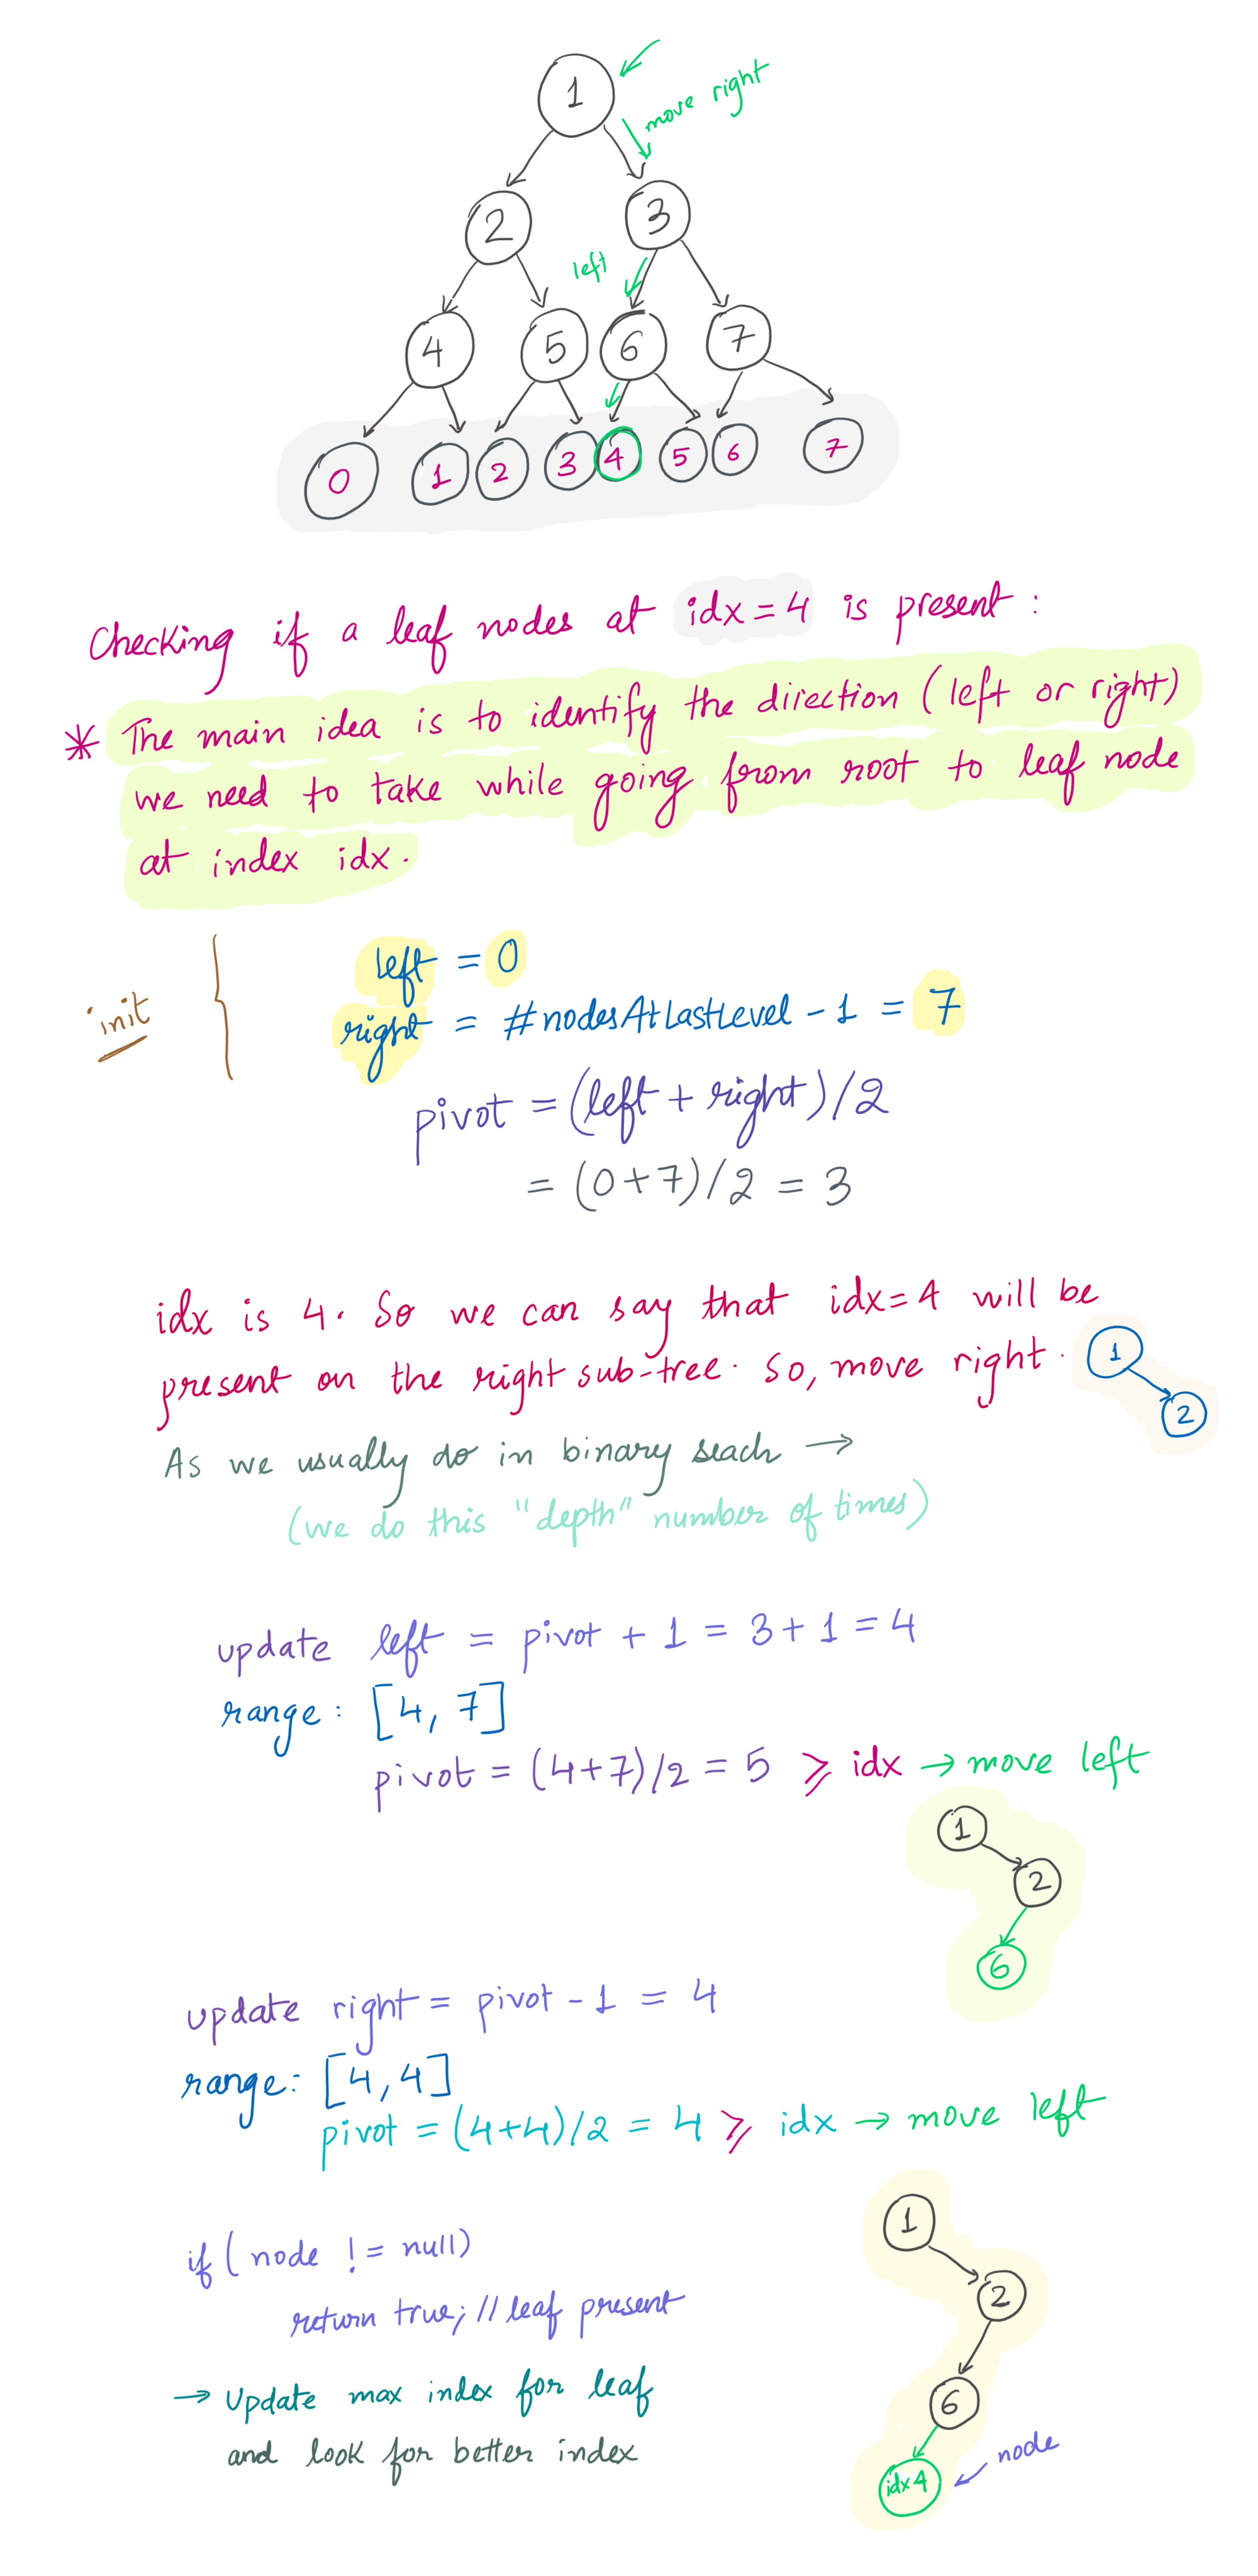 1
move right
2 3
left
4 5 6 7
0 1 2 3 4 5 6 7
Checking if a leaf nodes at idx=4 is present :
* The main idea is to identify the direction (left or right)
we need to take while going from root to leaf node
at index idx.
init
left = 0
right = #nodesAtLastLevel - 1 = 7
pivot = (left + right)/2
= (0+7)/2 = 3
idx is 4. So we can say that idx=4 will be
present on the right sub-tree. So, move right.
1
2
As we usually do in binary seach →
(we do this "depth" number of times)
update left = pivot + 1 = 3+1 = 4
range: [4, 7]
pivot = (4+7)/2 = 5 ⩾ idx → move left
1
2
6
update right = pivot - 1 = 4
range: [4,4]
pivot = (4+4)/2 = 4 ⩾ idx → move left
1
2
6
idx4
node
if ( node != null)
return true; // leaf present
→ Update max index for leaf
and look for better index